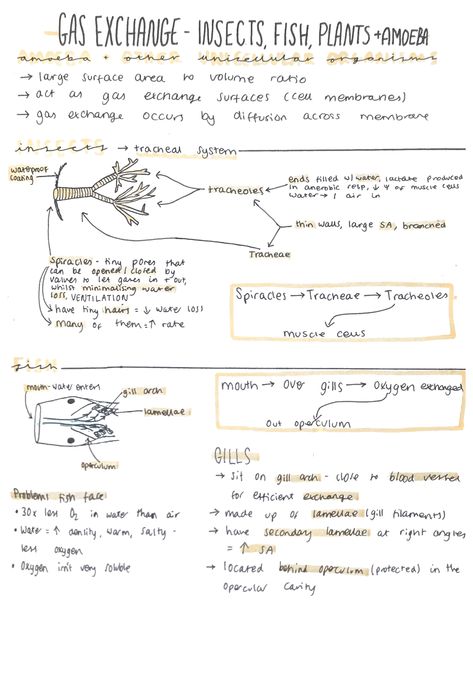 GAS EXCHANGE - INSECTS, FISH, PLANTS + AMOEBA
amoeba + other unicellular organisms
→ large surface area to volume ratio
→ act as gas exchange surfaces (cell membranes)
→ gas exchange occurs by diffusion across membrane
insects → tracheal system
waterproof
coating
tracheoles
ends filled w/ water, lactate produced
in anerobic resp, ↓ Ψ of muscle cells
water → ↓ air in
thin walls, large SA, branched
Tracheae
Spiracles - tiny pores that
can be opened/closed by
valves to let gases in + out,
whilst minimalising water
loss, VENTILATION
→ have tiny hairs = ↓ water loss
→ many of them = ↑ rate
Spiracles → Tracheae → Tracheoles
muscle cells
fish
mouth - water enters
gill arch
lamellae
operculum
mouth → over gills → oxygen exchanged
out operculum
Problems fish face
• 30x less O₂ in water than air
• Water = ↑ density, warm, salty -
less oxygen
• Oxygen isn't very soluble
GILLS
→ sit on gill arch - close to blood vessel
for efficient exchange
→ made up of lamellae (gill filaments)
→ have secondary lamellae at right angles
= ↑ SA
→ located behind operculum (protected) in the
opercular cavity